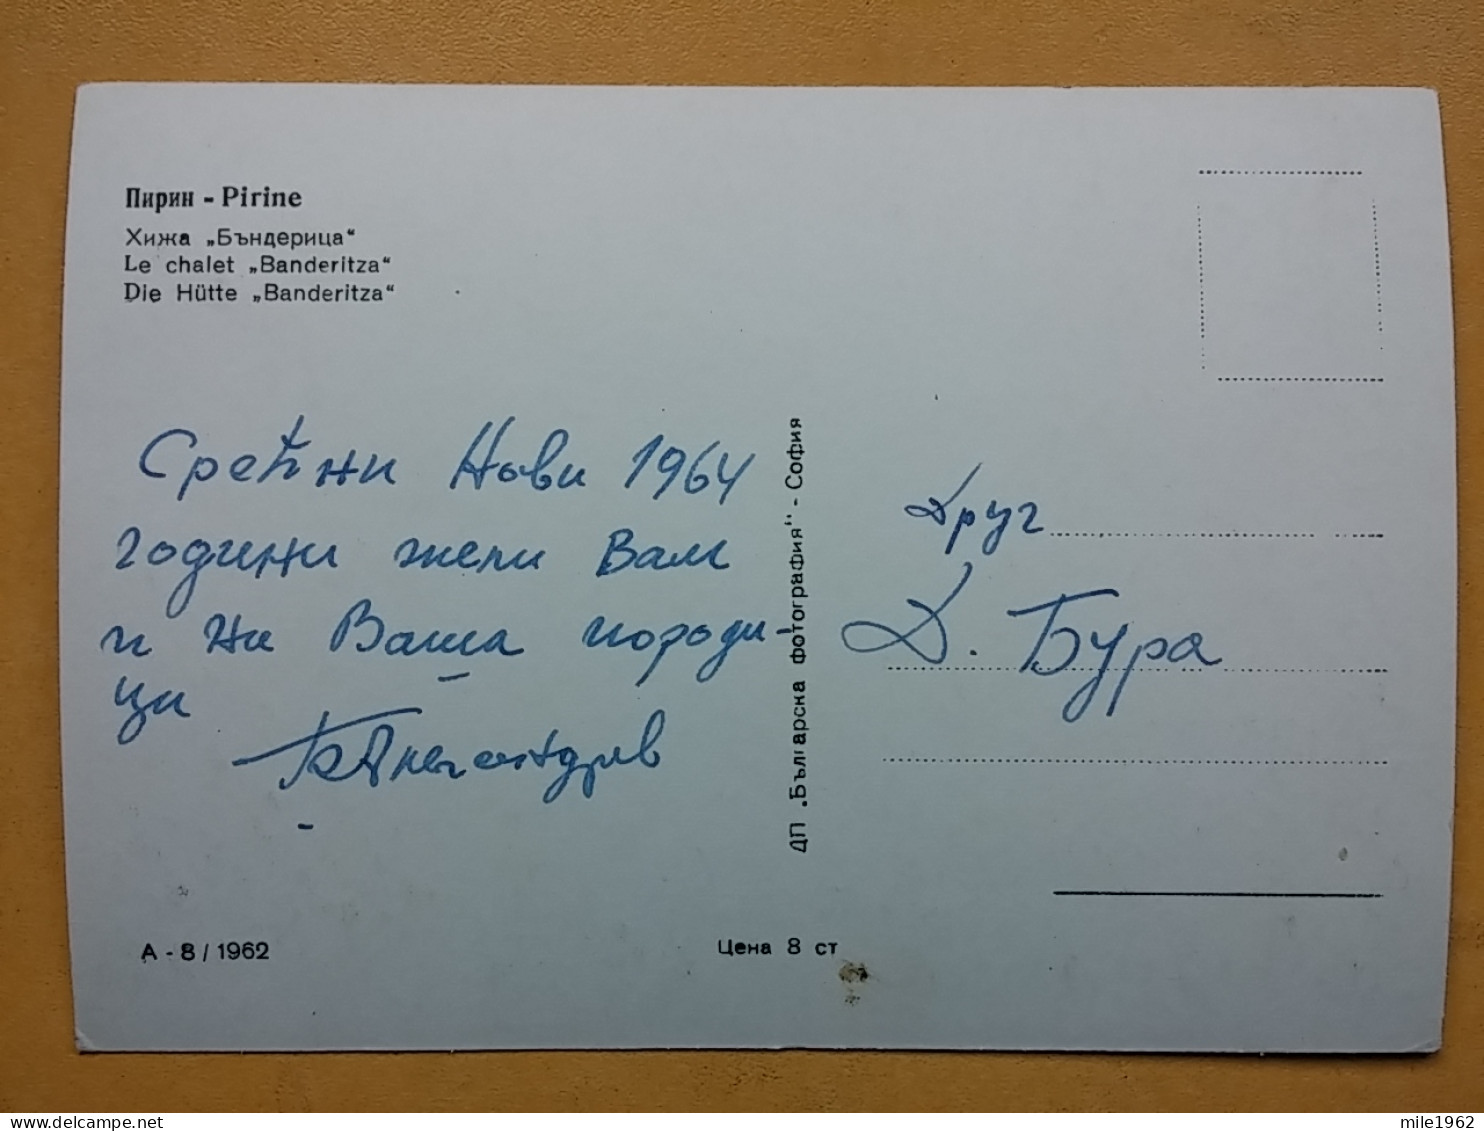 Пирин - Pirine
Хижа „Бъндерица“
Le chalet „Banderitza“
Die Hütte „Banderitza“
Срећни Нови 1964
години жели Вам
и на Ваша породи-
ци
А - 8 / 1962
Цена 8 ст
ДП „Българска фотография" - София
Друг
Д. Бура
mile1962